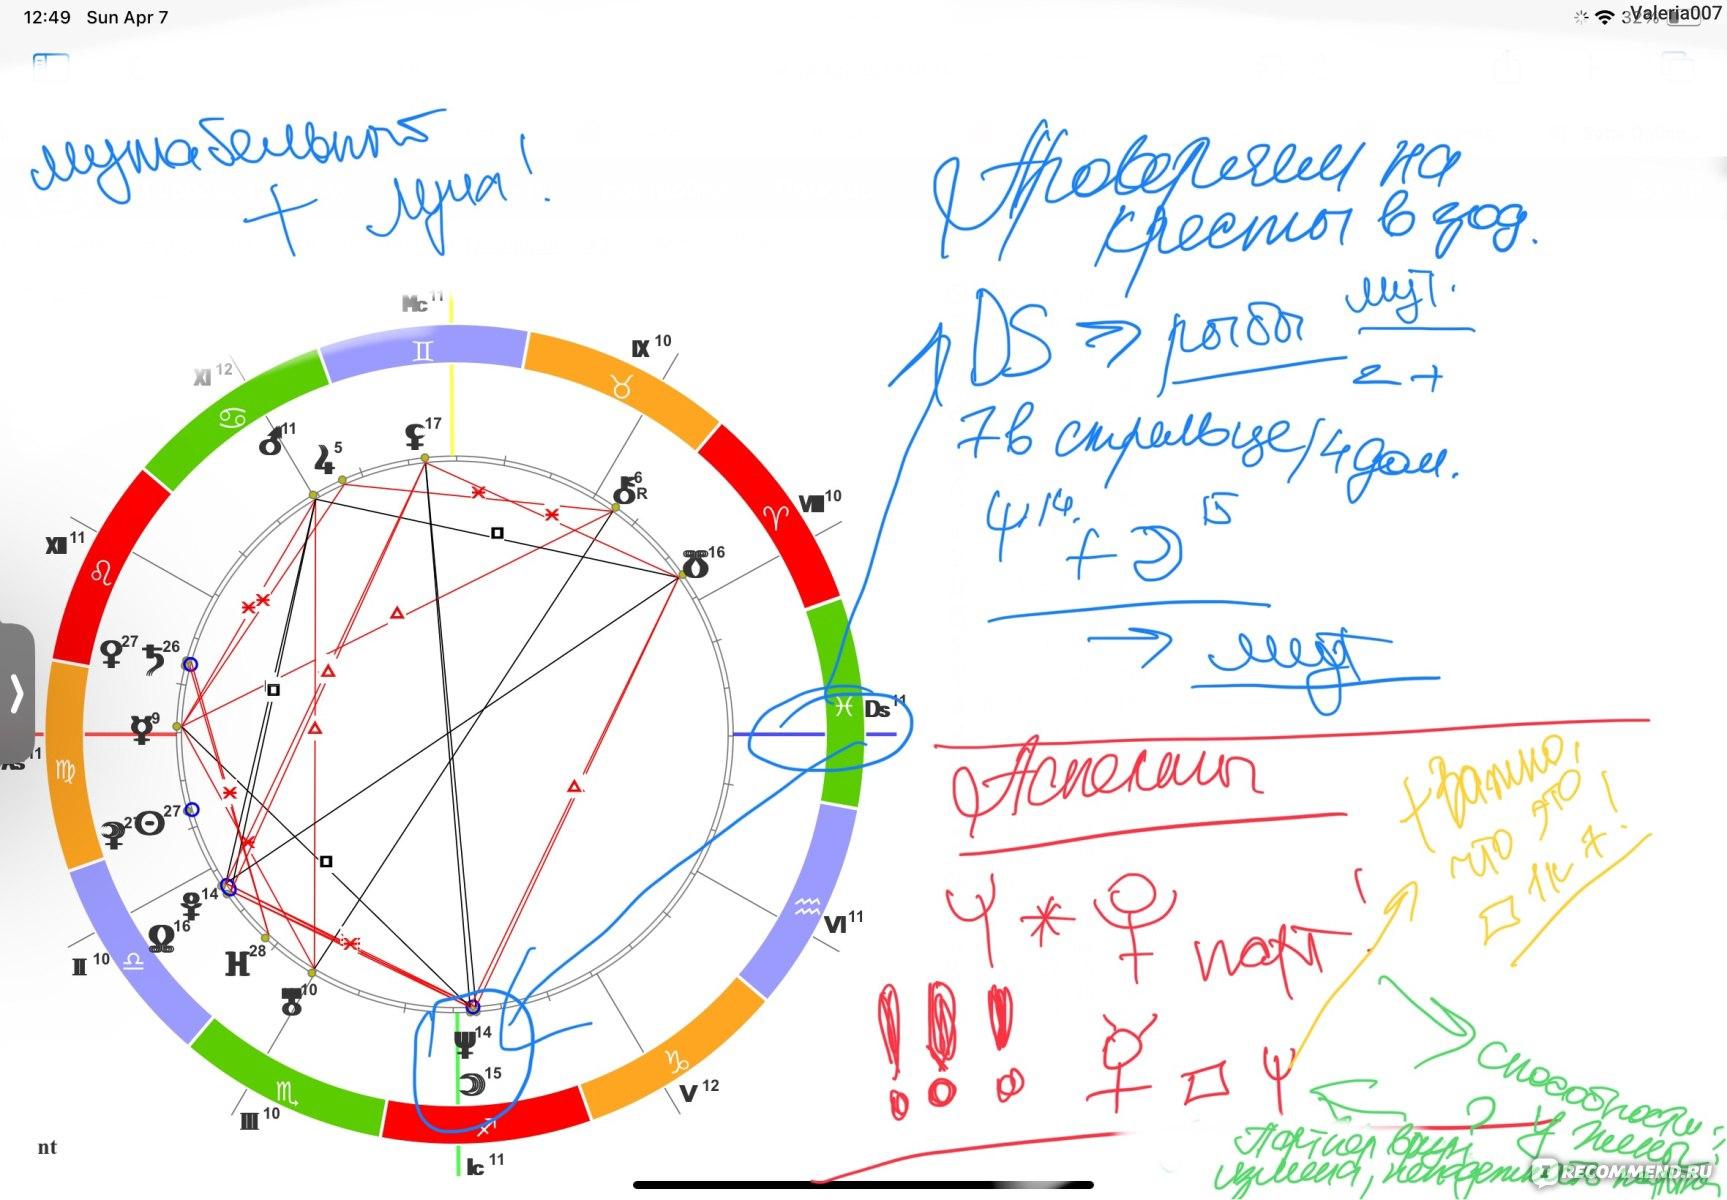 12:49 Sun Apr 7
32%
Valeria007
мутабельной
+ луна!
Проверяем на
кресты в зод.
DS → рыбы мут.
2 +
7 в стрельце/4 дом.
Ψ 14. + ☽ 15
→ мут
Аспекты
+ важно,
что это
□ 1 к 7!
Ψ * ♇ нат
!!! ☿ □ Ψ
способности
?
измена,
Mc 11
XI 12
IX 10
♊
♉
♋
♂ 11
♃ 5
⚸ 17
⚷ 6 R
VIII 10
♈
XII 11
♌
16
♀ 27 ♄ 26
☿ 9
As 11
♓ Ds 11
♍
☉ 27
♇ 14
☊ 16
II 10
♎
H 28
10
Ψ 14
☽ 15
♒
VI 11
♏
III 10
♐
♑
V 12
Ic 11
nt
IRECOMMEND.RU